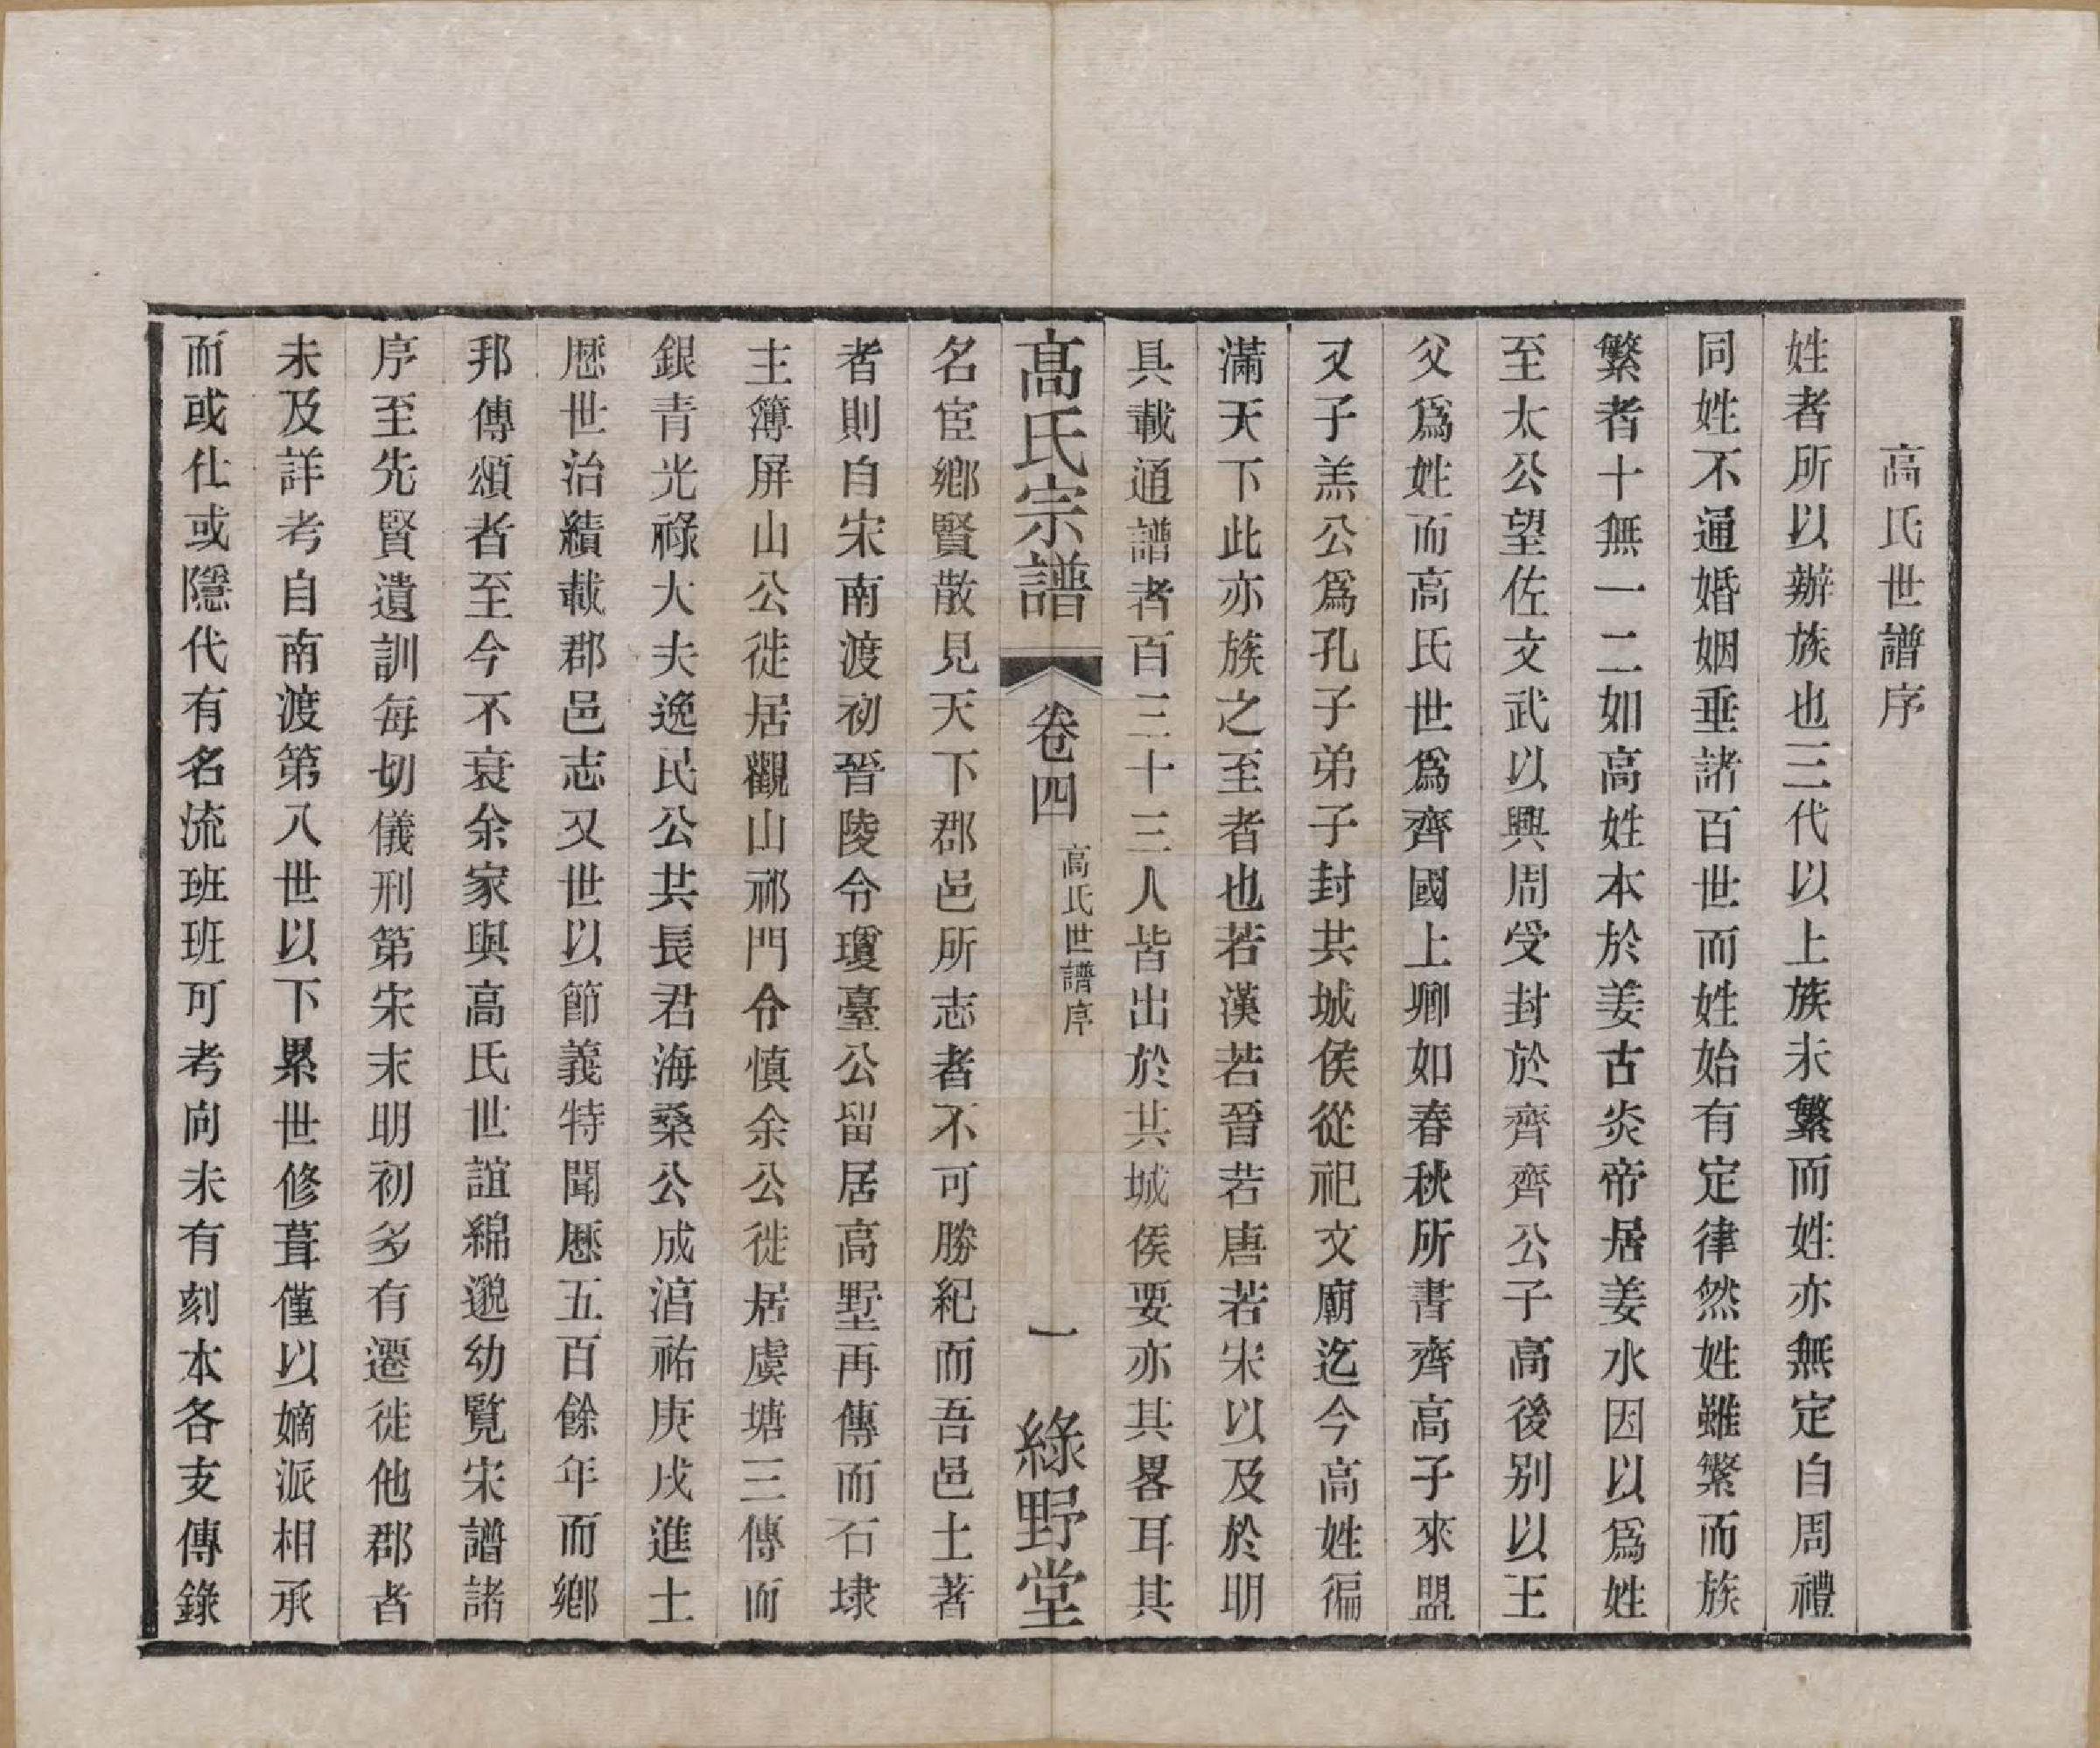 高氏世譜序
姓者所以辦族也三代以上族未繁而姓亦無定自周禮
同姓不通婚姻垂諸百世而姓始有定律然姓雖繁而族
繁者十無一二如高姓本於姜古炎帝居姜水因以爲姓
至太公望佐文武以興周受封於齊齊公子高後别以王
父爲姓而高氏世爲齊國上卿如春秋所書齊高子來盟
又子羔公爲孔子弟子封共城侯從祀文廟迄今高姓徧
滿天下此亦族之至者也若漢若晉若唐若宋以及於明
具載通譜者百三十三人皆出於共城侯要亦其畧耳其
高氏宗譜 卷四 高氏世譜序 一 綠野堂
名宦鄉賢散見天下郡邑所志者不可勝紀而吾邑土著
者則自宋南渡初晉陵令瓊臺公留居高墅再傳而石埭
主簿屏山公徙居觀山祁門令慎余公徙居虞塘三傳而
銀青光祿大夫逸民公共長君海桑公成湻祐庚戌進士
歷世治績載郡邑志又世以節義特聞歷五百餘年而鄉
邦傳頌者至今不衰余家與高氏世誼綿邈幼覧宋譜諸
序至先賢遺訓每切儀刑第宋末明初多有遷徙他郡者
未及詳考自南渡第入世以下累世修葺僅以嫡派相承
而或仕或隱代有名流班班可考向未有刻本各支傳錄